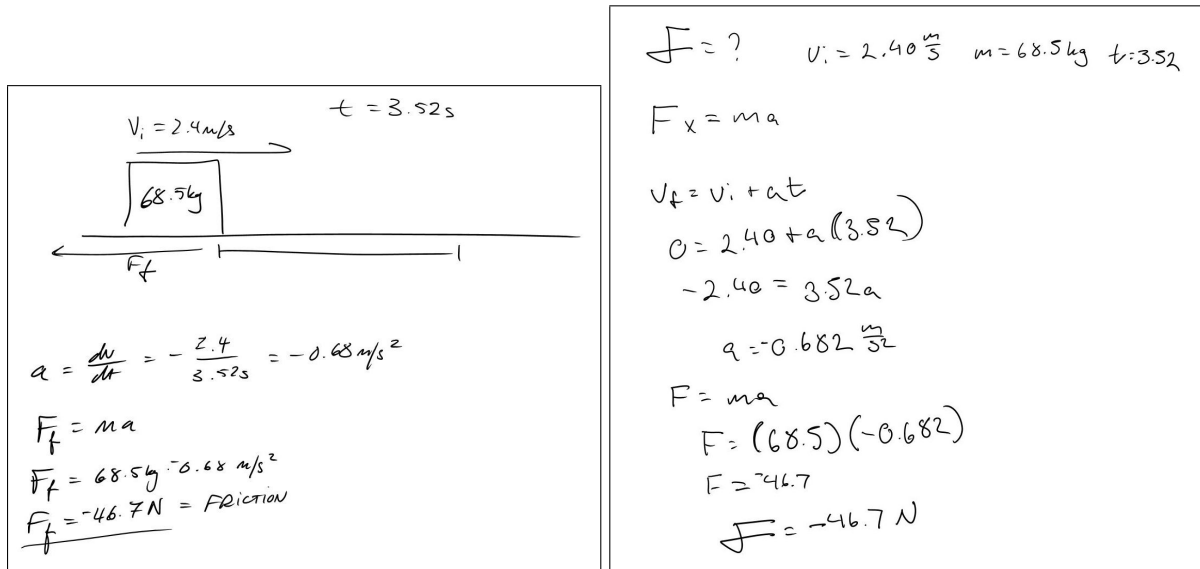 t = 3.52s
Vi = 2.4 m/s
68.5kg
Ff
a = dv/dt = - 2.4/3.52s = -0.68 m/s²
Ff = ma
Ff = 68.5kg · -0.68 m/s²
Ff = -46.7N = FRICTION
F = ? Vi = 2.40 m/s m = 68.5kg t = 3.52
Fx = ma
Vf = Vi + at
0 = 2.40 + a(3.52)
-2.40 = 3.52a
a = -0.682 m/s2
F = ma
F = (68.5)(-0.682)
F = -46.7
F = -46.7 N